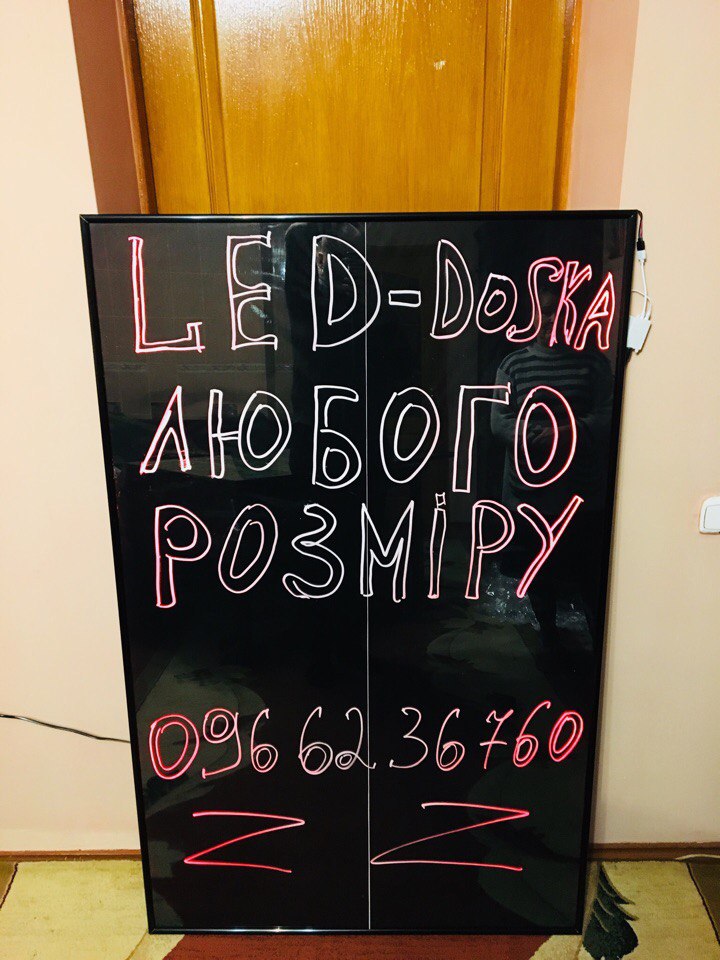 LED-DOSKA
ЛЮБОГО
РОЗМІРУ
096 62 36 760
Z Z